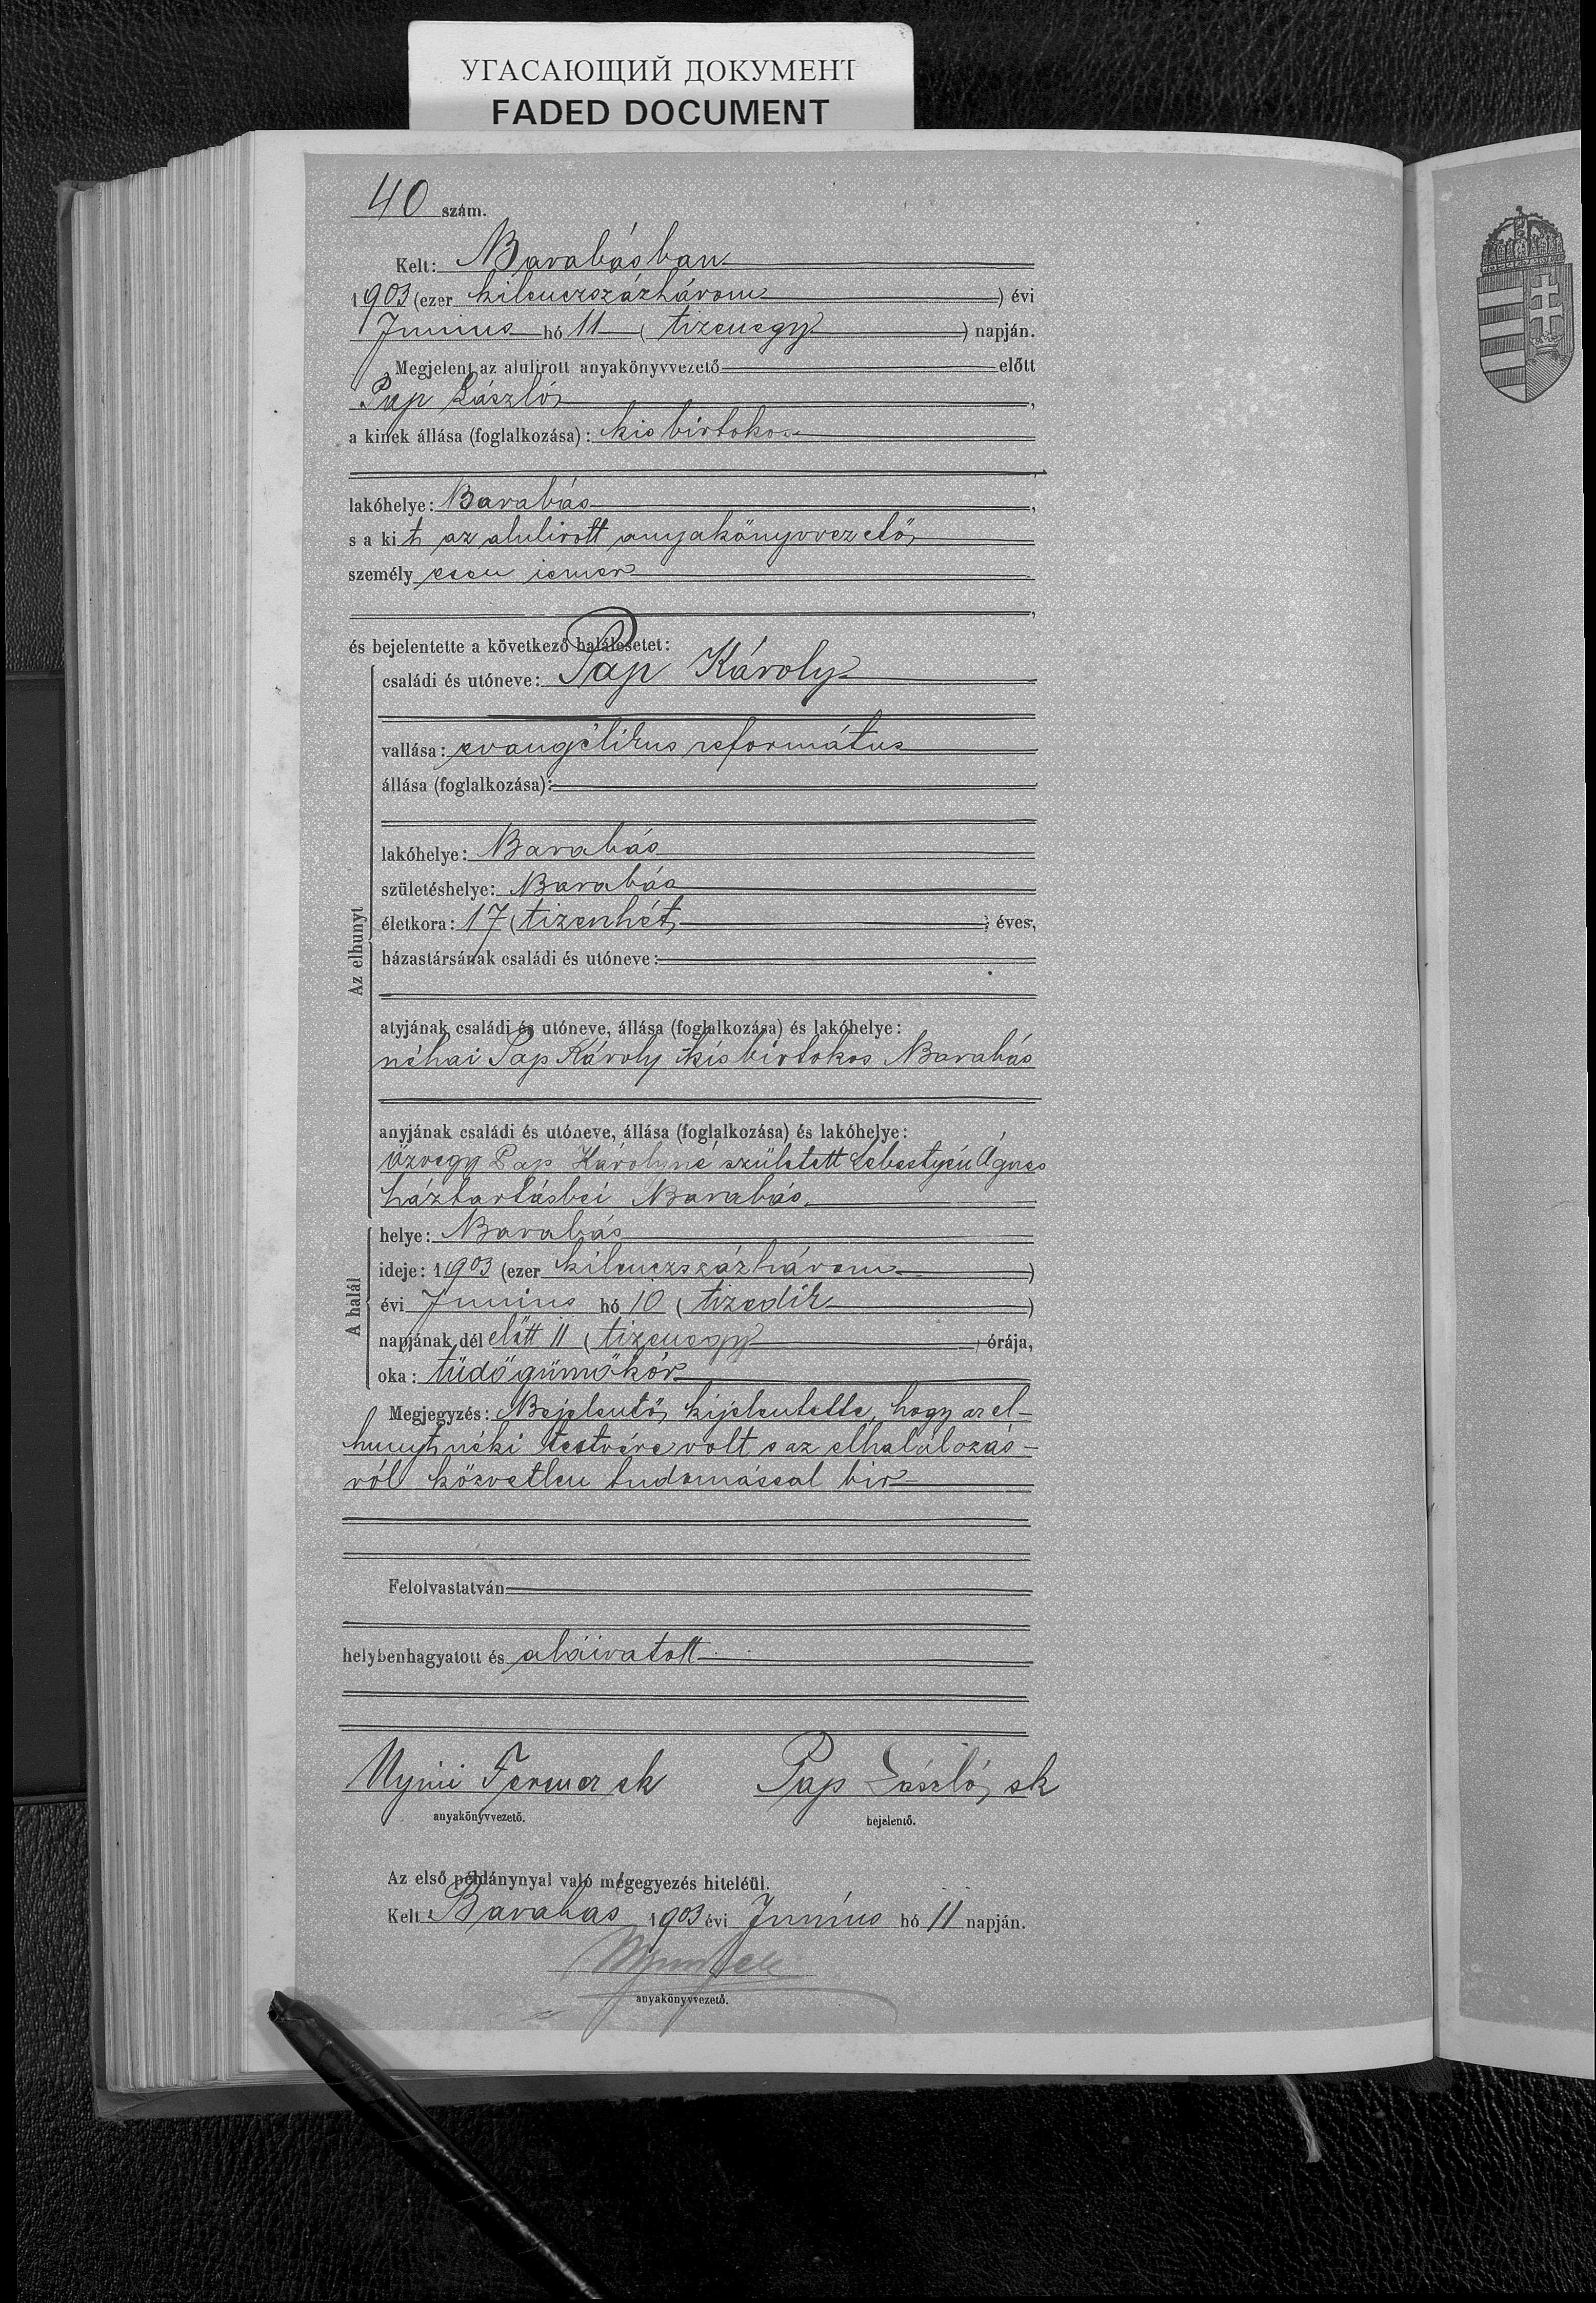 УГАСАЮЩИЙ ДОКУМЕНТ
FADED DOCUMENT
40 szám.
Kelt: Barabásban
1903 (ezer kilenczszázhárom ) évi
Junius hó 11 ( tizenegy ) napján.
Megjelent az alulirott anyakönyvvezető előtt
Pap László,
a kinek állása (foglalkozása): kisbirtokos
lakóhelye: Barabás,
s a kit az alulirott anyakönyvvezető
személyesen ismer
és bejelentette a következő halálesetet:
Az elhunyt
családi és utóneve: Pap Károly
vallása: evangélikus református
állása (foglalkozása):
lakóhelye: Barabás
születéshelye: Barabás
életkora: 17 (tizenhét) éves,
házastársának családi és utóneve:
atyjának családi és utóneve, állása (foglalkozása) és lakóhelye:
néhai Pap Károly kisbirtokos Barabás
anyjának családi és utóneve, állása (foglalkozása) és lakóhelye:
özvegy Pap Károlyné született Sebestyén Ágnes
háztartásbei Barabás
A halál
helye: Barabás
ideje: 1903 (ezer kilenczszázhárom )
évi Junius hó 10 ( tizedik )
napjának dél előtt 11 ( tizenegy ) órája,
oka: tüdőgümőkór
Megjegyzés: Bejelentő kijelentette, hogy az el-
hunyt néki testvére volt s az elhalálozás-
ról közvetlen tudomással bir
Felolvastatván
helybenhagyatott és aláiratott
Ferencz sk Pap László sk
anyakönyvvezető. bejelentő.
Az első példánynyal való megegyezés hiteléül.
Kelt Barabas 1903 évi Junius hó 11 napján.
anyakönyvvezető.